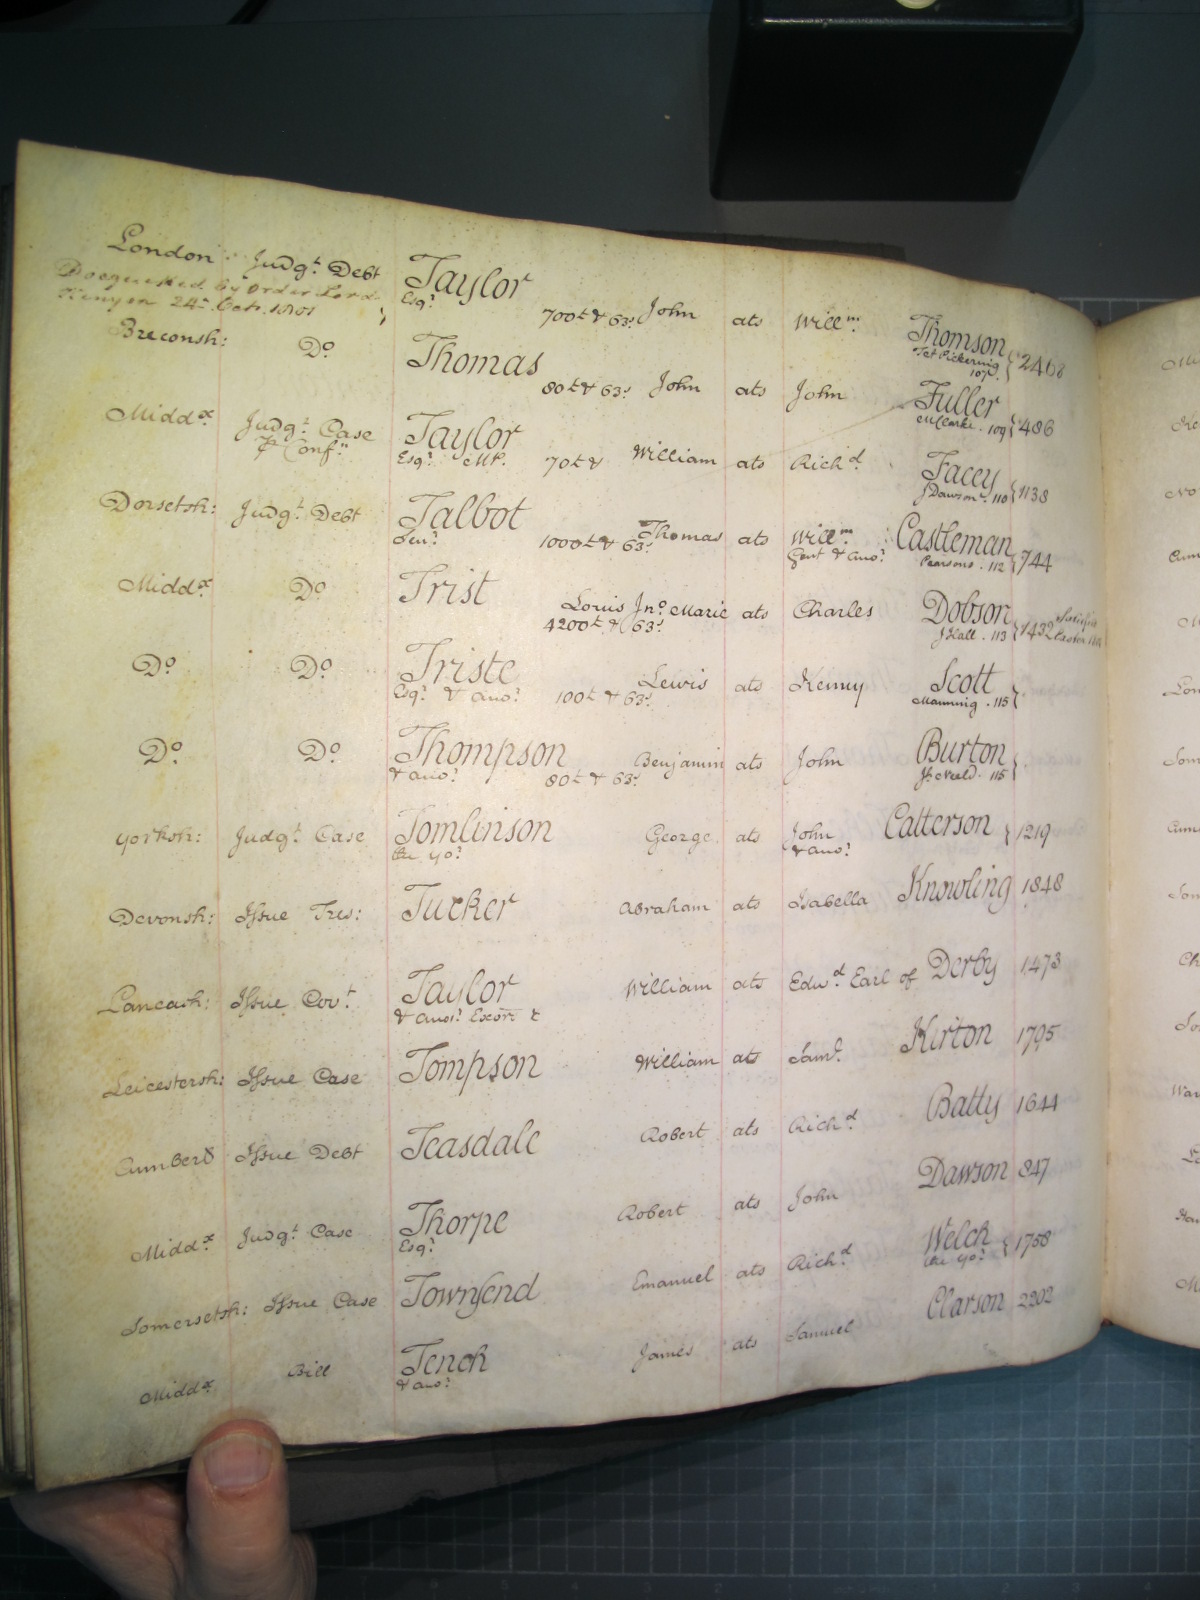 London Judgt. Debt Taylor 700£ & 63s. John ats Willm. Thomson 2468
Esqr. Pickering 107
Docquetted by Order Lord
Kenyon 24th Octr. 1801
Breconsh: Do. Thomas 80£ & 63s. John ats John Fuller 486
Clarke. 109
Middx. Judgt. Case Taylor 70£ & William ats Richd. Facey 1138
P Confn. Esqr. MP. J Dawson. 110
Dorsetsh: Judgt. Debt Talbot 1000£ & 63s. Thomas ats Willm. Castleman 744
Senr. Gent & anor. Pearsons. 112
Middx. Do. Trist Louis Jno. Marie ats Charles Dobson 1432
4200£ & 63s. J Hall. 113
Do. Do. Triste Lewis ats Kenny Scott
Esqr. & anor. 100£ & 63s. Manning. 115
Do. Do. Thompson Benjamin ats John Burton
& anor. 80£ & 63s. 115
Yorksh: Judgt. Case Tomlinson George ats John Catterson 1219
the yor. & anor.
Devonsh: Issue Tres: Tucker Abraham ats Isabella Knowling 1848
Lancash: Issue Covt. Taylor William ats Edwd. Earl of Derby 1473
& anor. Exors &c
Leicestersh: Issue Case Tompson William ats Saml. Kirton 1795
Cumberd Issue Debt Teasdale Robert ats Richd. Batty 1644
Middx. Judgt. Case Thorpe Robert ats John Dawson 847
Esqr.
Somersetsh: Issue Case Townsend Emanuel ats Richd. Welch 1758
the yor.
Middx. Bill Tench James ats Samuel Clarson 2202
& anor.